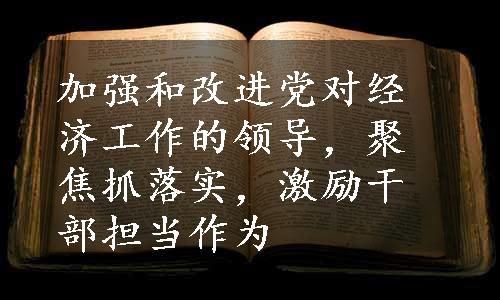 加强和改进党对经
济工作的领导，聚
焦抓落实，激励干
部担当作为